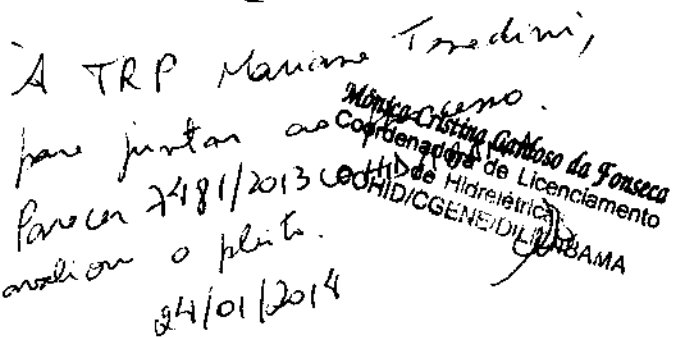 À TRP Mariana Tosedini,
para juntar ao processo.
Parecer 7481/2013 COHID
avaliou o pleito.
24/01/2014
Mônica Cristina Cardoso da Fonseca
Coordenadora de Licenciamento
de Hidrelétricas
COHID/CGENE/DILIC/IBAMA